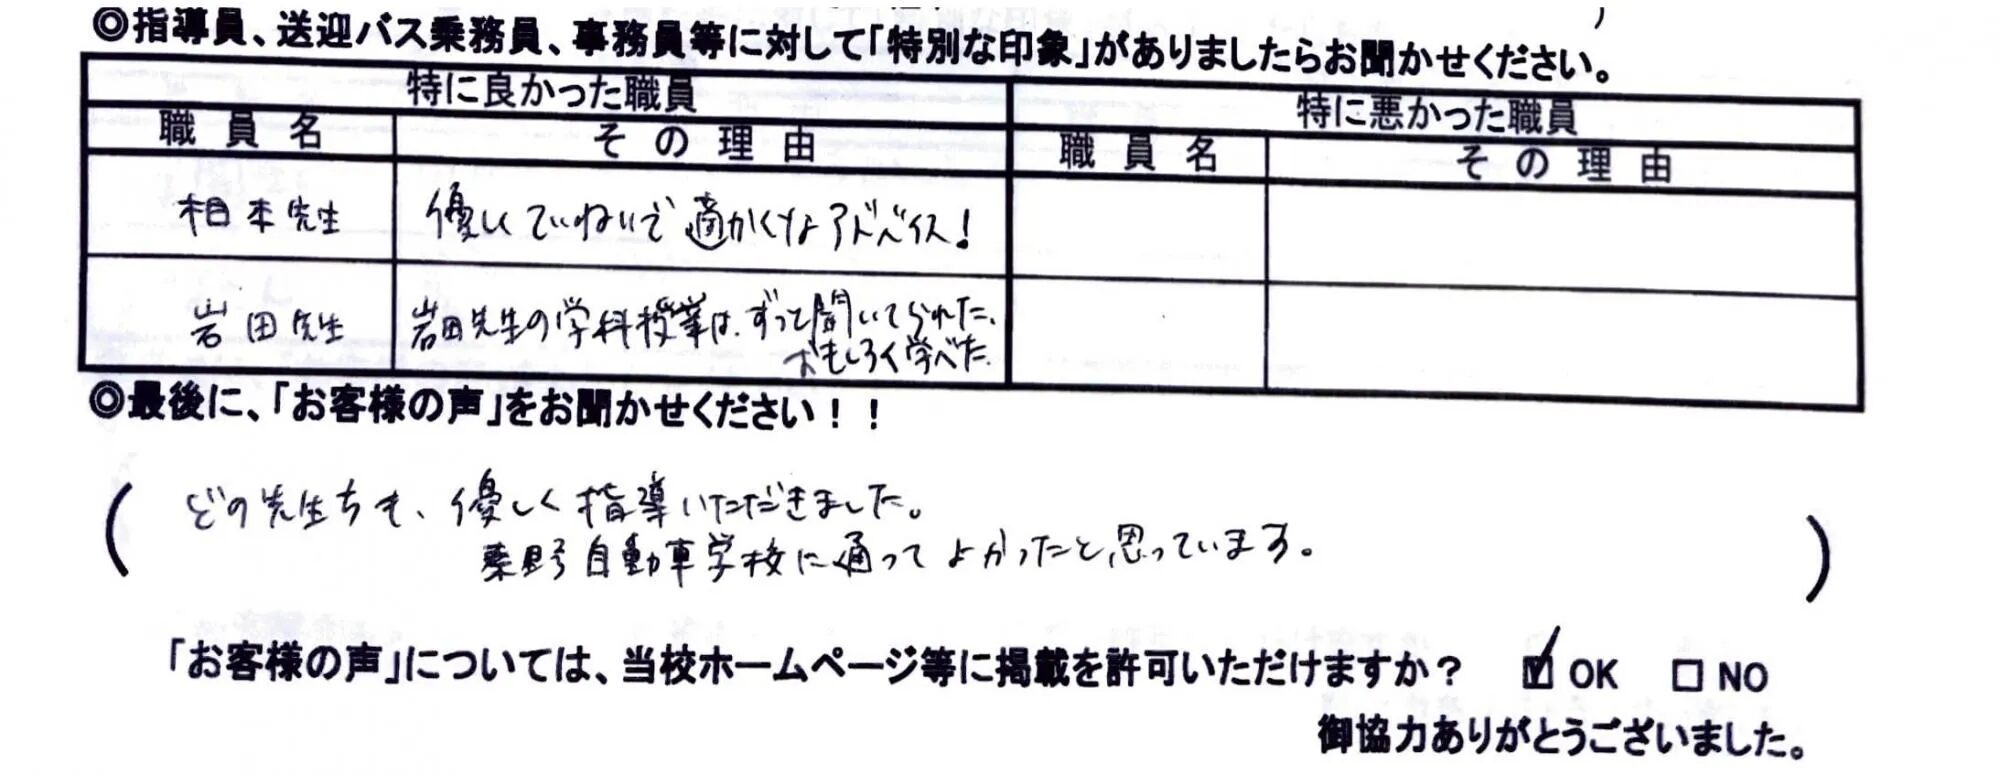 ◎指導員、送迎バス乗務員、事務員等に対して「特別な印象」がありましたらお聞かせください。
特に良かった職員 特に悪かった職員
職員名 その理由 職員名 その理由
相本先生 優しくていねいで適かくなアドバイス!
岩田先生 岩田先生の学科授業は、ずっと聞いてられた、
おもしろく学べた。
◎最後に、「お客様の声」をお聞かせください！！
( どの先生ちも、優しく指導いただきました。
秦野自動車学校に通ってよかったと思っています。 )
「お客様の声」については、当校ホームページ等に掲載を許可いただけますか？ ☑ OK □ NO
御協力ありがとうございました。